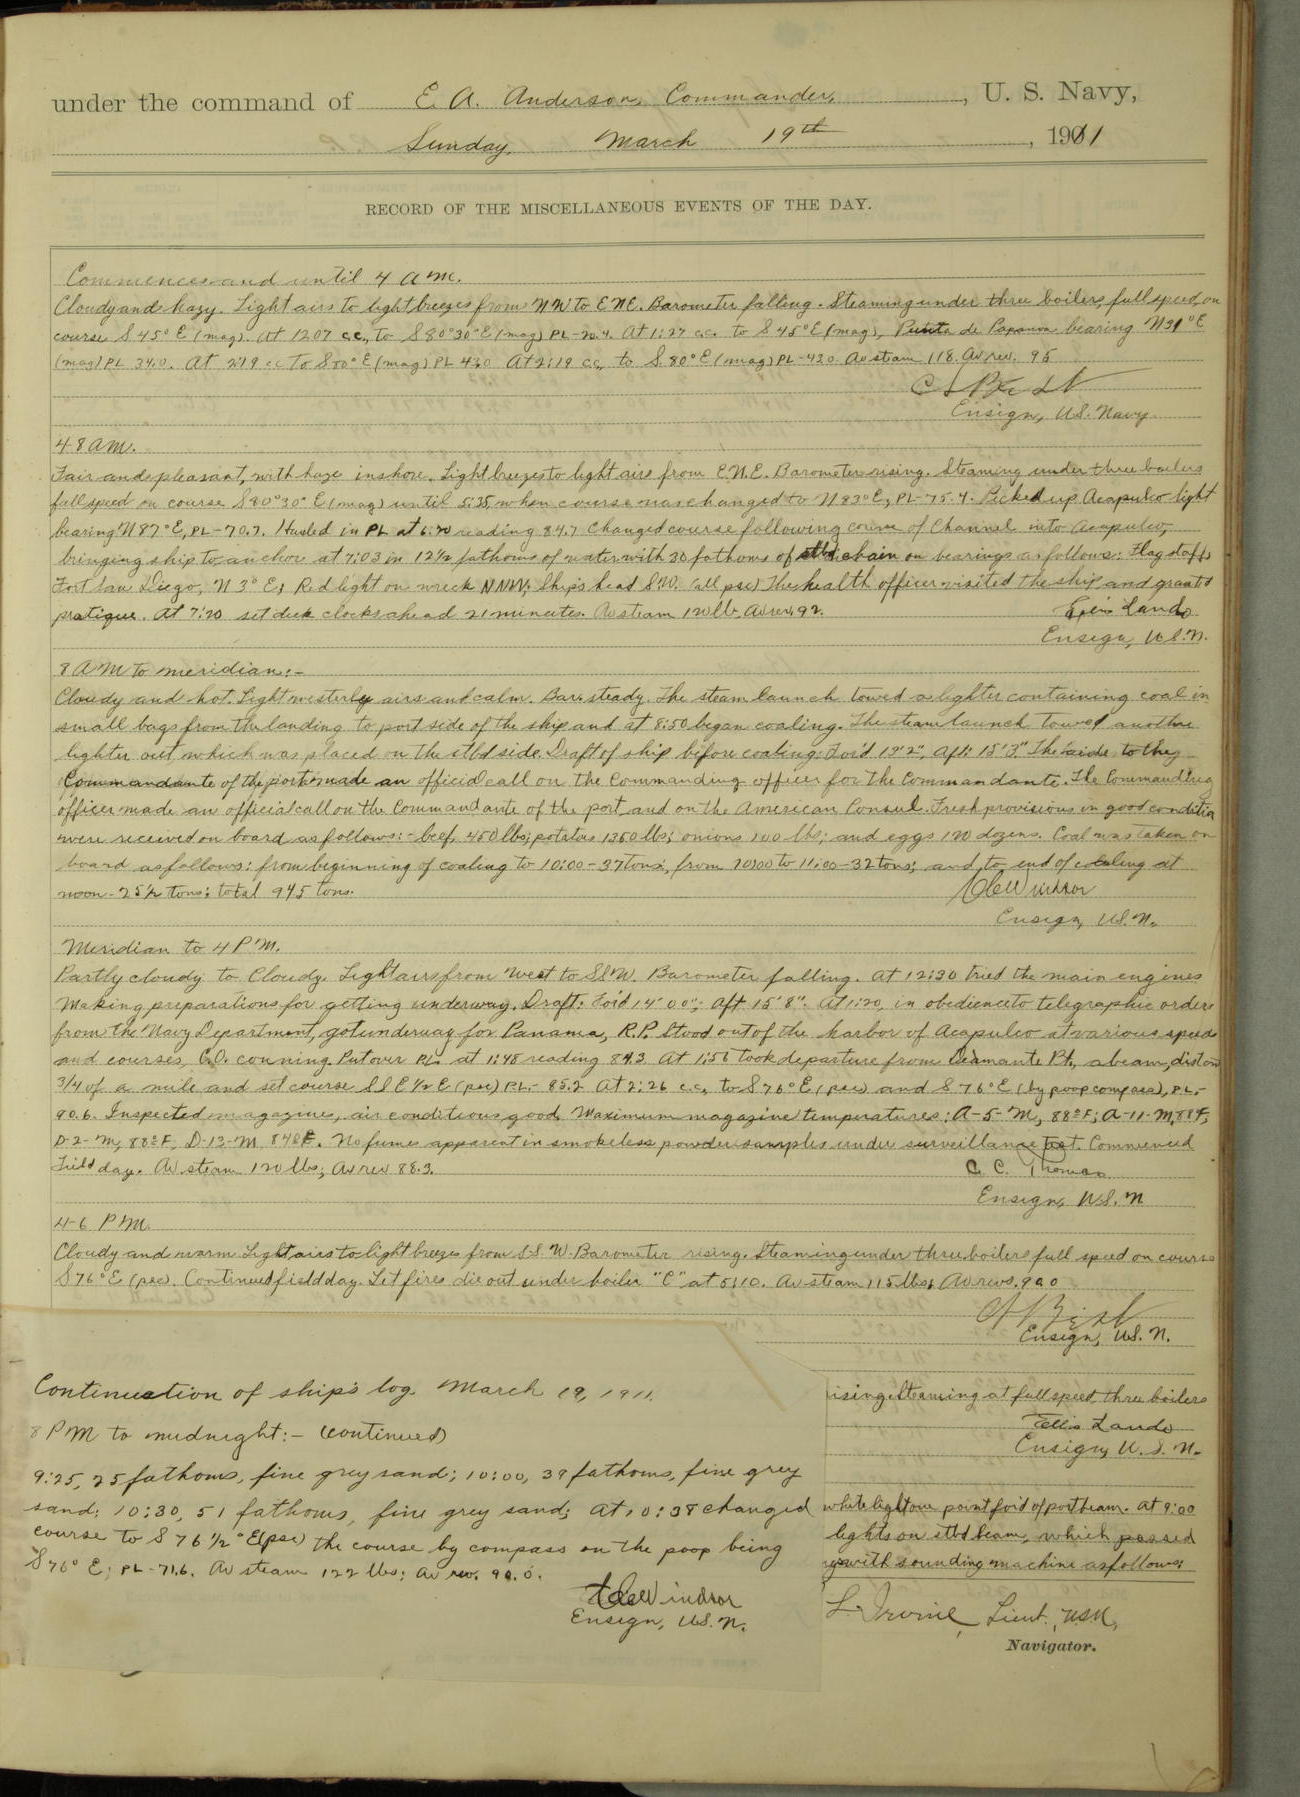 under the command of E. A. Anderson, Commander, U. S. Navy,
Sunday, March 19th, 1911
RECORD OF THE MISCELLANEOUS EVENTS OF THE DAY.
Commences and until 4 A.M.
Cloudy and hazy. Light airs to light breezes from NW to ENE. Barometer falling. Steaming under three boilers, full speed, on
course S 45° E (mag). At 1207 c.c. to S 80°30' E (mag) PL-20.4. At 1:27 c.c. to S 45° E (mag), Punta de Papanoa bearing N 31° E
(mag) PL 34.0. At 219 cc to S 80° E (mag) PL 42.0 At 2:19 c.c. to S. 80° E (mag) PL-42.0. Av steam 118. Av rev. 95
Ensign, U.S. Navy
4-8 AM.
Fair and pleasant, with haze inshore. Light breezes to light airs from E.N.E. Barometer rising. Steaming under three boilers
full speed on course S 80°30" E (mag) until 5:35, when course was changed to N 83° E, PL-75.4. Picked up Acapulco light
bearing N 87° E, PL-70.7. Hauled in PL at 6:20 reading 84.7 Changed course following course of Channel into Acapulco,
bringing ship to anchor at 7:03 in 12½ fathoms of water with 30 fathoms of stbd chain on bearings as follows: Flagstaff
Fort San Diego, N 3° E; Red light on wreck NNW; Ship's head S.W. (all psc) The health officer visited the ship and granted
pratique. At 7:20 set deck clocks ahead 21 minutes. Av steam 120 lb. Av rev. 92.
Ellis Lando
Ensign, U.S.N.
8 AM to meridian:-
Cloudy and hot. Light westerly airs and calm. Bar. steady. The steam launch towed a lighter containing coal in
small bags from the landing to port side of the ship and at 8:50 began coaling. The steam launch towed another
lighter out which was placed on the stbd side. Draft of ship before coaling: For'd 13' 2", aft: 15' 3". The aide to the
Commandante of the port made an official call on the Commanding officer for the Commandante. The Commanding
officer made an official call on the Commandante of the port and on the American Consul. Fresh provisions in good condition
were received on board as follows:- beef, 450 lbs; potatoes 1350 lbs; onions 100 lbs; and eggs 120 dozens. Coal was taken on
board as follows: from beginning of coaling to 10:00-37 tons; from 10:00 to 11:00-32 tons; and to end of coaling at
noon-25½ tons; total 94.5 tons.
Windsor
Ensign, U.S.N.
Meridian to 4 P.M.
Partly cloudy to Cloudy. Light airs from West to SSW. Barometer falling. At 12:30 tried the main engines
Making preparations for getting underway. Draft: For'd 14' 00"; Aft 15' 8". At 1:20, in obedience to telegraphic orders
from the Navy Department, got underway for Panama, R.P. Stood out of the harbor of Acapulco at various speeds
and courses, C.O. conning. Put over P.L. at 1:48 reading 84.3 At 1:51 took departure from Diamante Pt., abeam, distant
3/4 of a mile and set course SSE ½ E (psc) P.L.- 85.2 At 2:26 c.c. to S 76° E (psc) and S 76° E (by poop compass), P.L.-
90.6. Inspected magazines, air conditions good. Maximum magazine temperatures: A-5-M, 88° F; A-11-M, 88° F;
D-2-M, 88° F, D-13-M. 84° F. No fumes apparent in smokeless powder samples under surveillance test. Commenced
Field day. Av steam 120 lbs; Av rev 88.3.
C. C. Thomas
Ensign, U.S.N
4-6 PM.
Cloudy and warm. Light airs to light breezes from S.S.W. Barometer rising. Steaming under three boilers full speed on course
S 76° E (psc). Continued field day. Let fires die out under boiler "C" at 5:10. Av steam 115 lbs; Av revs. 90.0
Ensign, U.S.N.
rising. Steaming at full speed, three boilers
Ellis Lando
Ensign, U.S.N.
white light on point for'd of port beam. At 9:00
lights on stbd beam, which passed
with sounding machine as follows:
Continuation of ship's log March 19, 1911.
8 PM to midnight:- (continued)
9:25, 25 fathoms, fine grey sand; 10:00, 39 fathoms, fine grey
sand; 10:30, 51 fathoms, fine grey sand; at 10:38 changed
course to S 76½° E (psc) the course by compass on the poop being
S 76° E; PL-71.6. Av steam 122 lbs; Av rev. 90.0.
Windsor
Ensign, U.S.N.
L. Irvine, Lieut., USN,
Navigator.